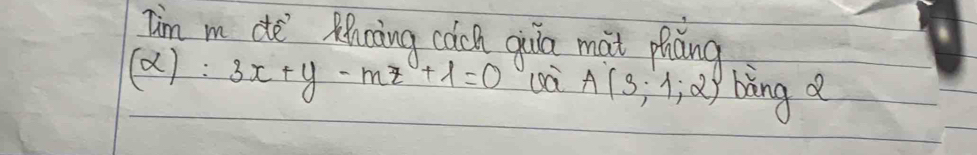 Tìm m để khoảng cách giữa mặt phẳng
(α) : 3x + y - mz + 1 = 0 và A(3; 1; 2) bằng 2